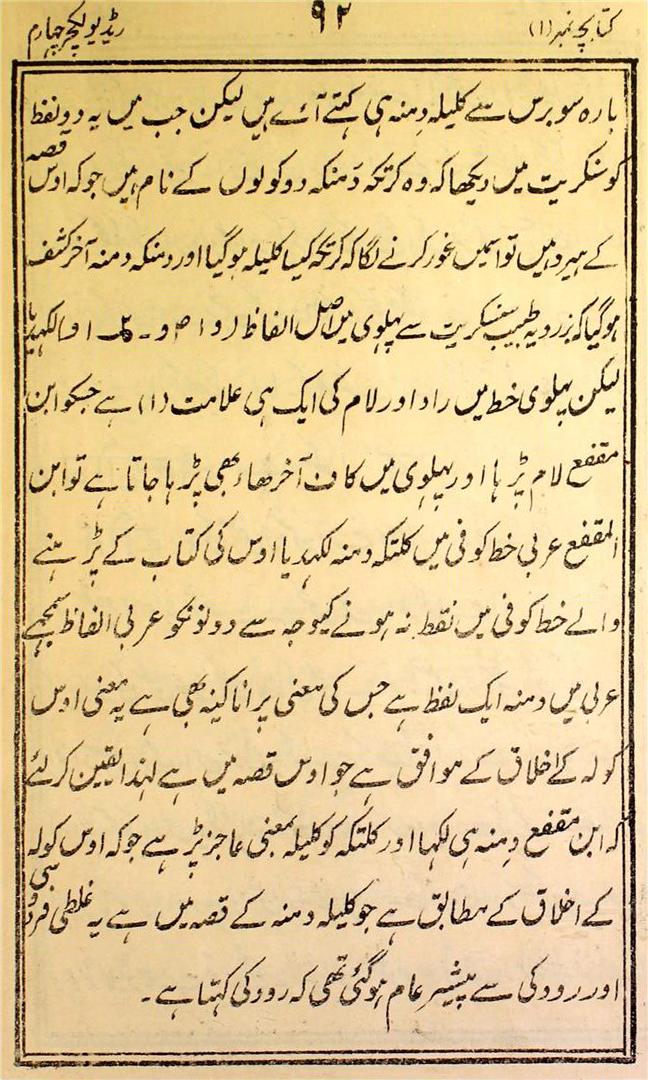 کتابچہ نمبر (۱) ۹۲ ریڈیو لکچر چہارم
بارہ سو برس سے کلیلہ دمنہ ہی کہتے آئے ہیں لیکن جب میں یہ دو نفظ
کو سنکریت میں دیکھا کہ وہ کرتکہ دَمنکہ دو کولوں کے نام ہیں جو کہ اوس قصہ
کے ہیرو ہیں تو اسمیں غور کرنے لگا کہ کرتکہ کیسا کلیلہ ہو گیا اور دمنکہ دمنہ آخر کشف
ہو گیا کہ بزرویہ طبیب سنسکریت سے پہلوی میں اصل الفاظ لکہدیا
لیکن پہلوی خط میں راء اور لام کی ایک ہی علامت (۱) ہے جسکو ابن
مقفع لام پڑہا اور پہلوی میں کاف آخر ھاء بھی پڑہا جاتا ہے تو ابن
المقفع عربی خط کوفی میں کلتکہ دمنہ لکہدیا اوس کی کتاب کے پڑہنے
والے خط کوفی میں نقط نہ ہونے کیوجہ سے دونونکو عربی الفاظ سمجہے
عربی میں دمنہ ایک لفظ ہے جس کی معنی پرانا کینہ بھی ہے یہ معنی اوس
کولہ کے اخلاق کے موافق ہے جو اوس قصہ میں ہے لہٰذا یقین کر لئے
کہ ابن مقفع دِمنہ ہی لکہا اور کلتکہ کو کلیلہ بمعنی عاجز پڑہے جو کہ اوس کولہ
کے اخلاق کے مطابق ہے جو کلیلہ دمنہ کے قصہ میں ہے یہ غلطی فردوسی
اور رودکی سے پیشتر عام ہو گئی تھی کہ رودکی کہتا ہے۔